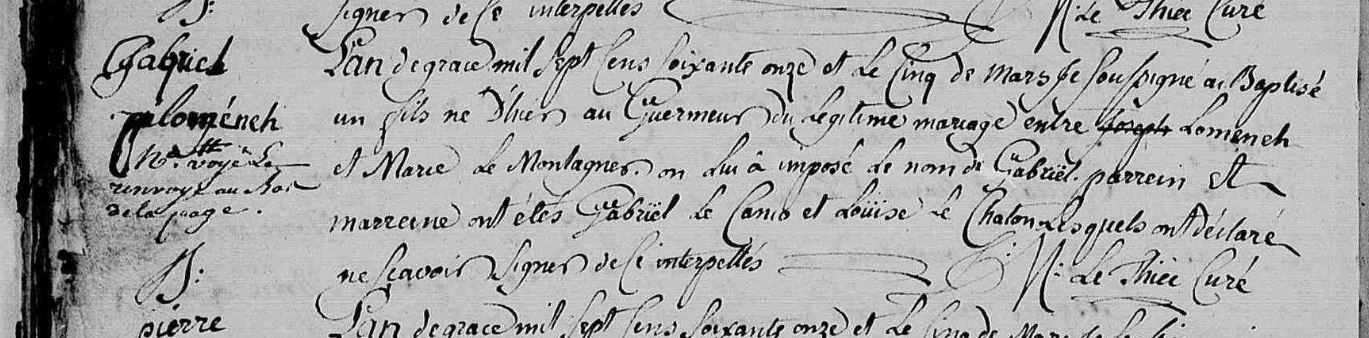 B:
signer de ce interpellés
N: Le Thiec Curé
Gabriel
Loméneh
Nª. voyé Le
renvoye au bas
de la page.
L'an de grace mil sept cens soixante onze et Le Cinq de Mars Je soussigné ai Baptisé
un fils ne D'hier au Guermeur du Legitime mariage entre Joseph Lomeneh
et Marie Le Montagner. on Lui â imposé Le nom de Gabriël. parrein et
marreine ont étés Gabriël Le Camo et Loüise Le Chaton Lesquels ont déclaré
ne scavoir signer de Ce interpellés
N: Le Thiec Curé
B:
pierre
L'an de grace mil sept cens soixante onze et Le Cinq de Mars Je